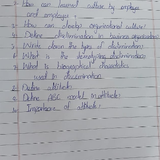 How can learned culture by employee
and employer?
2) How can develop organizational culture?
3) Define discrimination in business organization
4) Write down the types of discrimination
5) What is the stereotyping discrimination
6) What is biographical characteristics
used in discrimination
7) Define attitude
8) Define ABC model in attitude
9) Importance of attitude